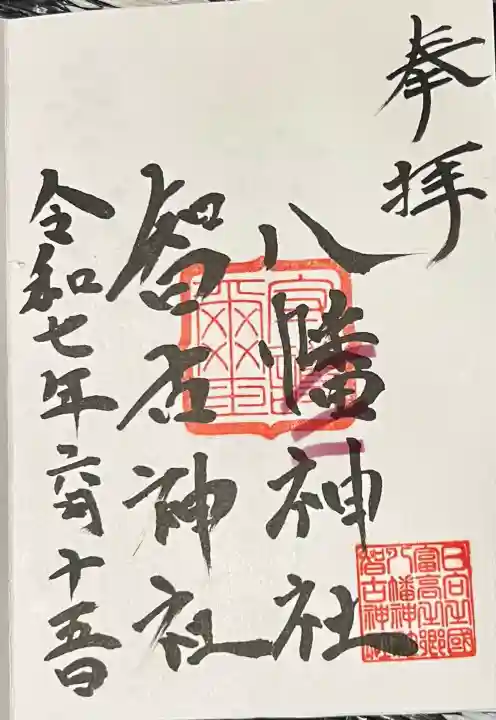 奉拝
八幡神社
智古神社
令和七年六月十五日
日向之國
富高之郷
八幡神社
智古神社